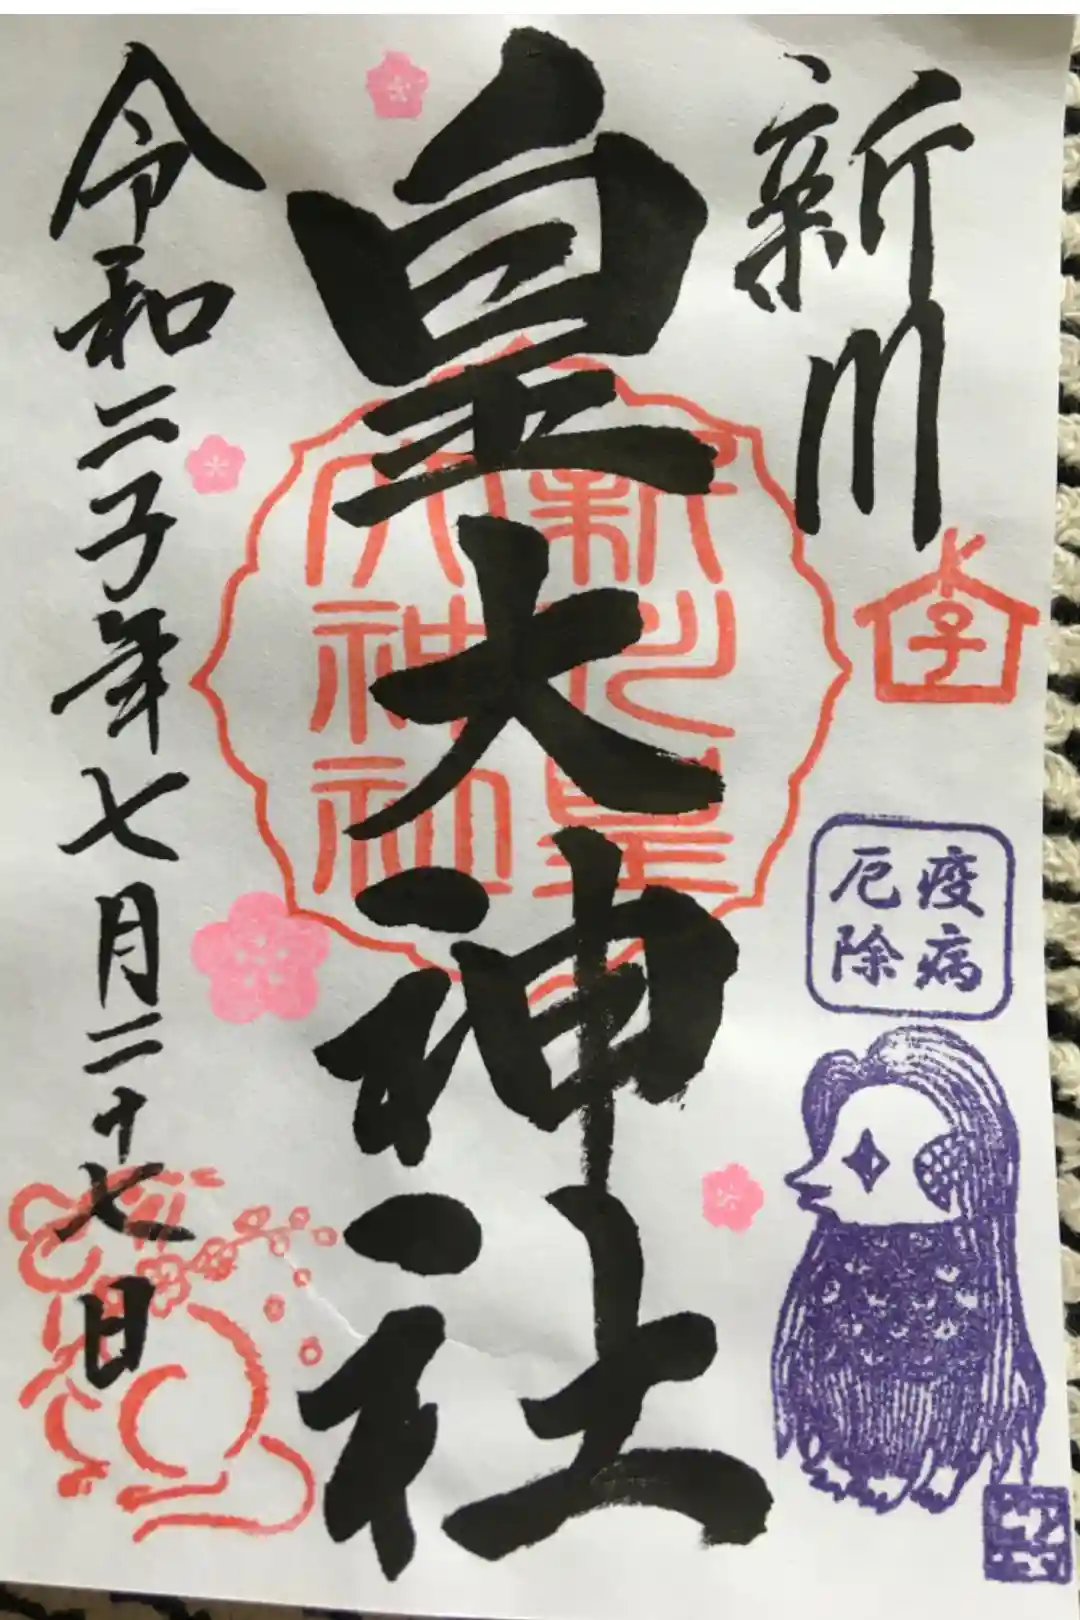 新川
子
疫病
厄除
皇大神社
新川皇
大神社
令和二子年七月二十七日